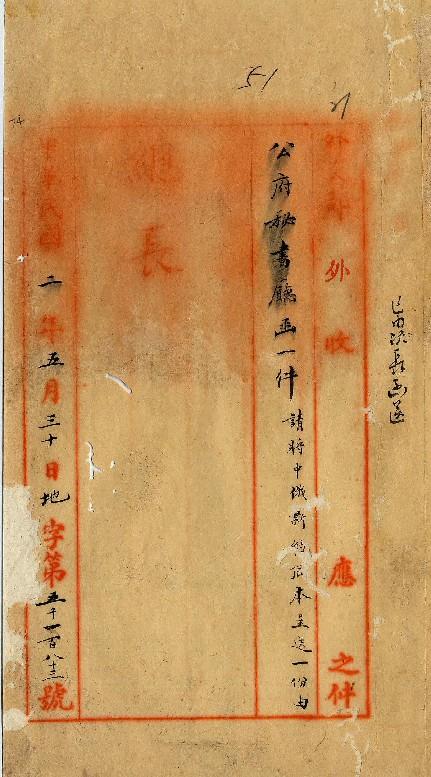 51
已由次長函送
外交部外收應之件
公府秘書廳函一件 請將中俄新舊約本呈送一份由
總長
中華民國二年五月三十日地字第五千一百八十三號